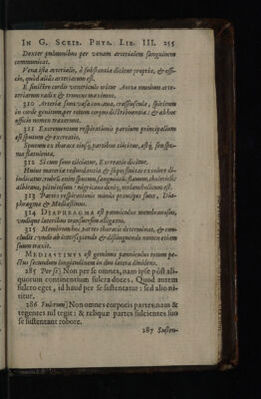 IN G. SCRIB. PHYS. LIB. III. 215
Dexter pulmonibus per venam arterialem sanguinem
communicat.
Vena ista arterialis, à substantia dicitur proprie, & offi-
cio, quòd aliàs arteriarum est.
E sinistro cordis ventriculo oritur Aorta omnium arte-
riarum radix & truncus maximus.
310 Arteriæ sunt vasa concava, crassiuscula, spiritum
in corde genitum per totum corpus distribuentia: & ab hoc
officio nomen traxerunt.
311 Excrementum respirationis partium principalium
est sputum & excreatio.
Sputum ex thorace
312 Si cum sono eliciatur, Excreatio dicitur.
Huius materiæ redundantia &
albicans, pituitosum: nigricans denique, melancholicum est.
313 Partes respirationis minùs principes sunt, Dia-
phragma & Mediastinus.
314 DIAPHRAGMA est panniculus membranosus,
undique lateribus transversim alligatus.
315 Membrum hoc partes thoracis determinat, & con-
cludit: unde ab intersepiendo & distinguendo nomen etiam
suum traxit.
MEDIASTINVS est geminus panniculus totum pe-
ctus secundum longitudinem in duo latera dividens.
285 Per se] Non per se omnes, nam ipse post ali-
quorum continentium fulcra doces. Quod autem
fulcro eget, id haud per se sustentatur: sed alio ni-
titur.
286 Fulcrum] Non omnes corporis partes, nam &
tegentes sui tegit: & reliquæ partes fulcientes suo
se sustentant robore.
287 Susten-